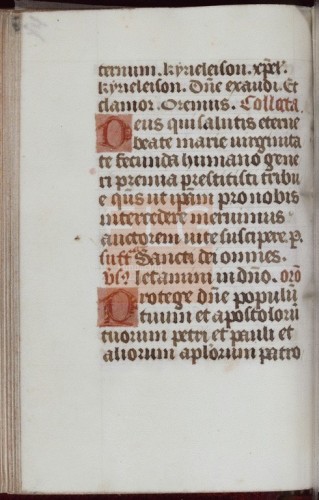 ternum. kyrieleison. xp̄el'.
kyrieleison. Dn̄e exaudi. Et
clamor. Oremus. Collecta.
Deus qui salutis eterne
beate marie virginita
te fecunda humano gene
ri premia prestitisti tribu
e qs̄ ut ip̄am pro nobis
intercedere
auctorem vite suscipere. p.
suff. Sancti dei omnes.
vs. letamini in dn̄o. oro̅
Protege dn̄e populū
tuum et apostolorū
tuorum petri et pauli et
aliorum ap̄lorum patro